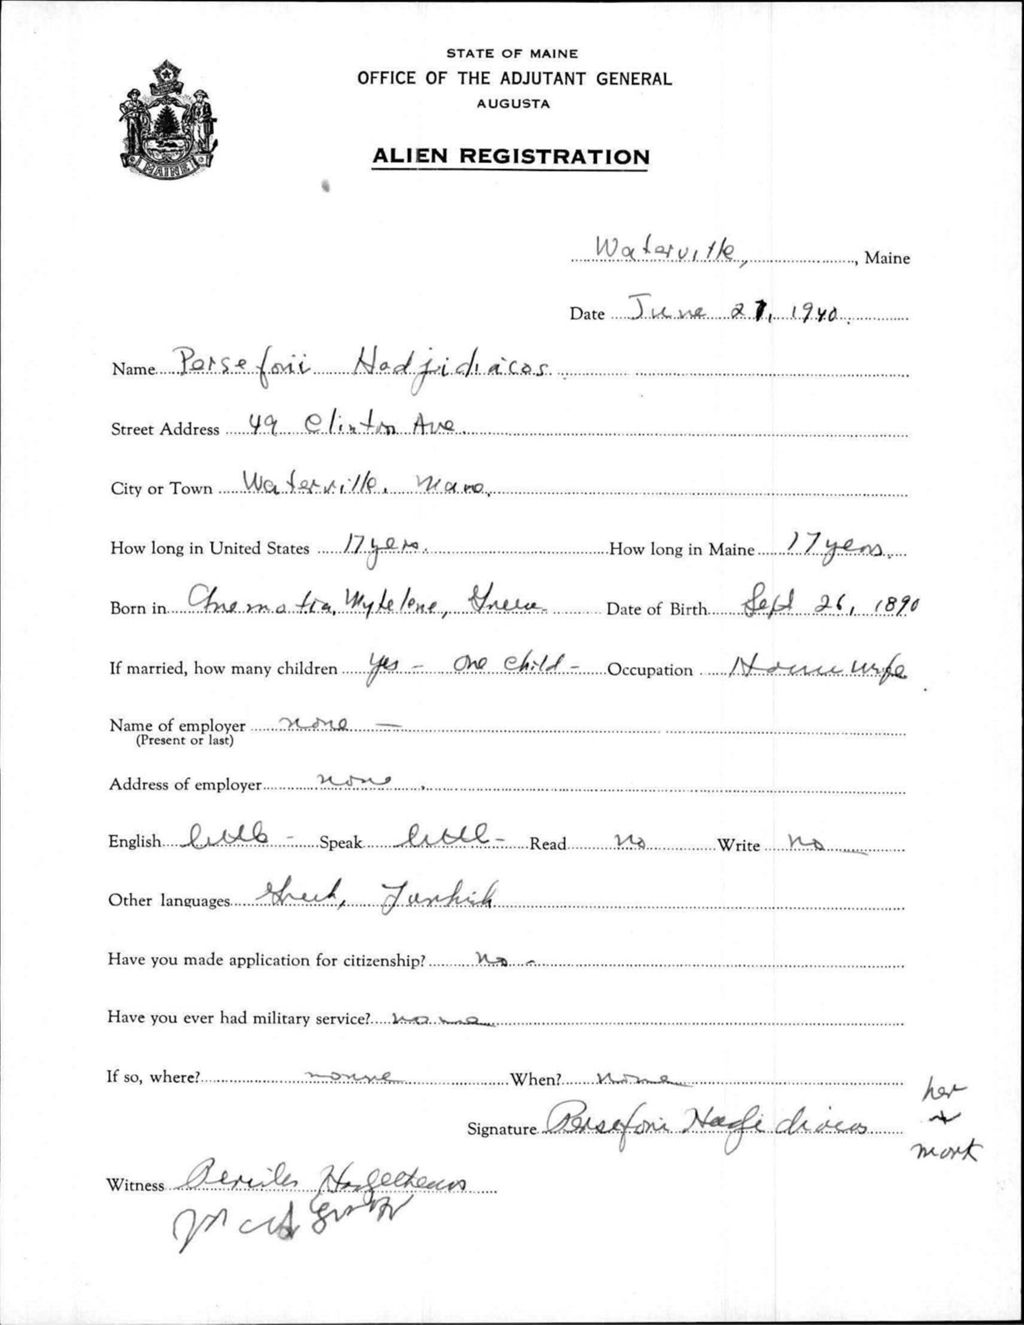 STATE OF MAINE
OFFICE OF THE ADJUTANT GENERAL
AUGUSTA
ALIEN REGISTRATION
MAINE
Waterville, Maine
Date June 27, 1940.
Name Persefoni Hadjidiacos
Street Address 49 Clinton Ave.
City or Town Waterville, Maine.
How long in United States 17 years. How long in Maine 17 years.
Born in Mytelene, Greece Date of Birth Sept 26, 1890
If married, how many children Yes - one child - Occupation House wife
Name of employer none -
(Present or last)
Address of employer none
English little - Speak little - Read no Write no
Other languages Greek, Turkish
Have you made application for citizenship? no -
Have you ever had military service? none
If so, where? none When? none
her
Signature Persefoni Hadjidiacos x
mark
Witness Pericles